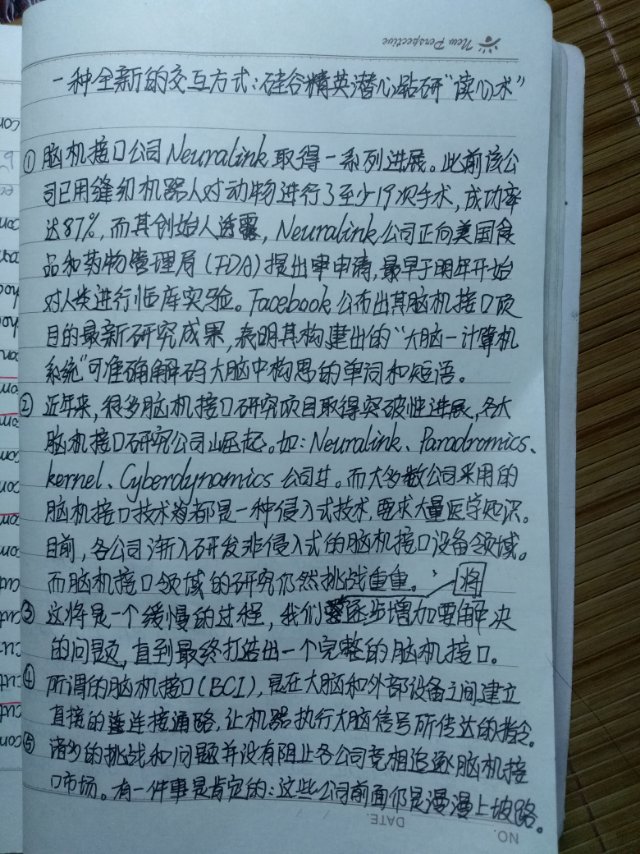 New Perspective
一种全新的交互方式：硅谷精英潜心钻研“读心术”
① 脑机接口公司Neuralink取得一系列进展。此前该公
司已用缝纫机器人对动物进行了至少19次手术，成功率
达87%，而其创始人透露，Neuralink公司正向美国食
品和药物管理局（FDA）提出申请，最早于明年开始
对人类进行临床实验。Facebook公布出其脑机接口项
目的最新研究成果，表明其构建出的“大脑—计算机
系统”可准确解码大脑中构思的单词和短语。
② 近年来，很多脑机接口研究项目取得突破性进展，各大
脑机接口研究公司崛起。如：Neuralink、Paradromics、
kernel、Cyberdynamics公司等。而大多数公司采用的
脑机接口技术都是一种侵入式技术，要求大量医学知识。
目前，各公司渐入研发非侵入式的脑机接口设备领域。
而脑机接口领域的研究仍然挑战重重。
将
③ 这将是一个缓慢的过程，我们逐步增加要解决
的问题，直到最终打造出一个完整的脑机接口。
④ 所谓的脑机接口（BCI），是在大脑和外部设备之间建立
直接的连接通路，让机器执行大脑信号所传达的指令。
⑤ 诸多的挑战和问题并没有阻止各公司竞相追逐脑机接
口市场。有一件事是肯定的：这些公司前面仍是漫漫上坡路。
NO. DATE.